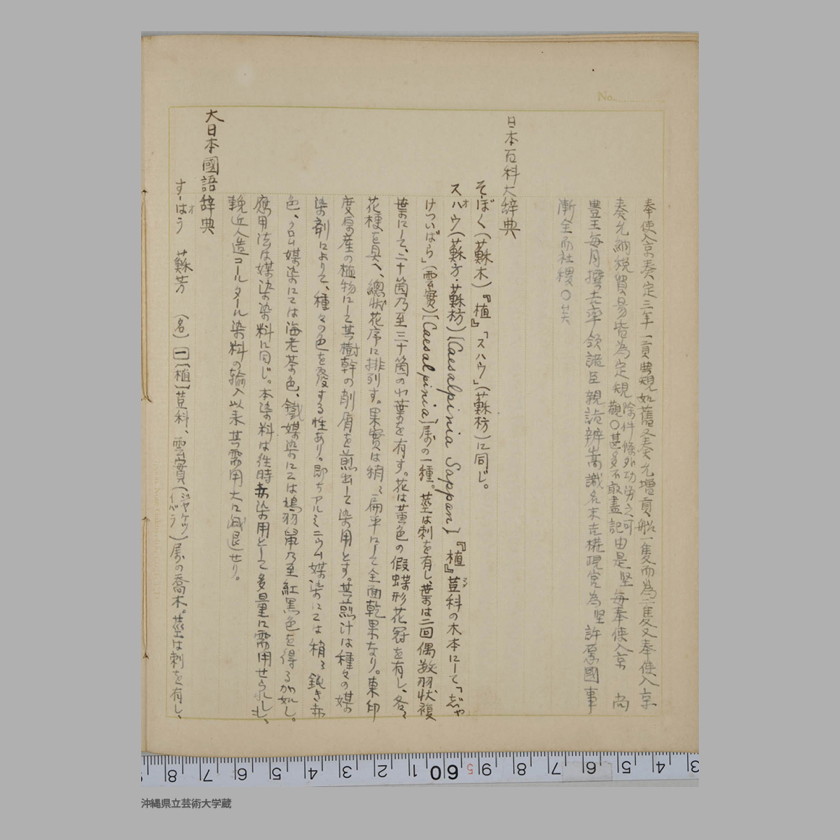 奉使入京奏定三年一貢典規如舊又奏允増貢船一隻而為二隻又奉使入京
奏允納税貿易皆為定規除科條外功労之可觀〇甚多不敢盡記由是堅毎奉使入京 尚
豊王毎月
漸全而社稷〇
日本百科大辞典
そぼく(蘇木)『植』「スハウ」(蘇枋)に同じ。
スハウ(蘇方、蘇枋)[Caesalpinia Sappan]『植』荳科の木本にして「じゃ
けついばら」(雲實)[Caesalpinia]属の一種。莖は刺を有し葉は二回偶数羽状複
葉にして、二十箇乃至三十箇の小葉を有す。花は黄色の假蝶形花冠を有し、各々
花梗を具へ、總状花序に排列す。果實は稍々扁平にして全面乾果なり。東印
度原産の植物にして其樹幹の削屑を煎出して染用とす。其煎汁は種々の媒
染剤によりて、種々の色を發する性あり。即ちアルミニウム媒染にては稍々鈍き赤
色、クロム媒染にては海老茶色、鐵媒染にては鳩羽鼠乃至紅黒色を得るが如し。
應用法は媒染染料に同じ。本染料は往時赤染用として多量に需用せられしも、
輓近人造コールタール染料の輸入以来其需用大に減退せり。
大日本國語辞典
すはう 蘇芳 (名) 一[植]荳科、雲實(ジャケツイバラ)属の喬木。莖は刺を有し、
No.
3 4 5 6 7 8 9 60 1 2 3 4 5 6 7 8
沖縄県立芸術大学蔵